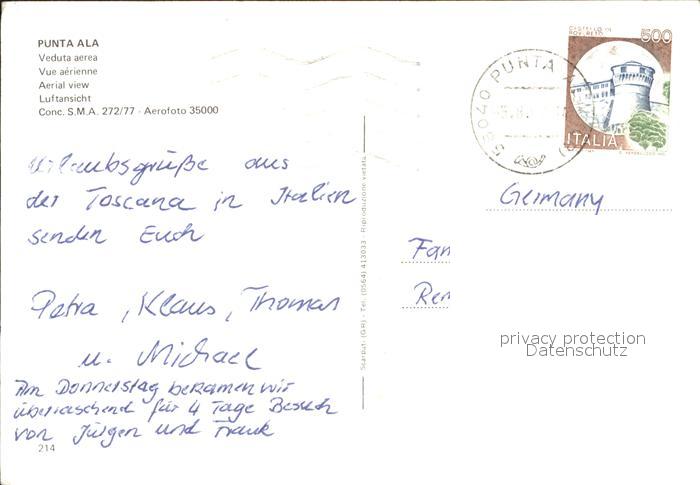 PUNTA ALA
Veduta aerea
Vue aérienne
Aerial view
Luftansicht
Conc. S.M.A. 272/77 - Aerofoto 35000
Urlaubsgrüße aus
der Toscana in Italien
senden Euch
Petra, Klaus, Thomas
u. Michael
Am Donnerstag bekamen wir
überraschend für 4 Tage Besuch
von Jürgen und Frank
214
Scarpati (GR) - Tel. (0564) 413033 - Riproduzione vietata
58040 PUNTA A
CASTELLO DI
ROVERETO
500
ITALIA
Germany
Fam
Ren
privacy protection
Datenschutz